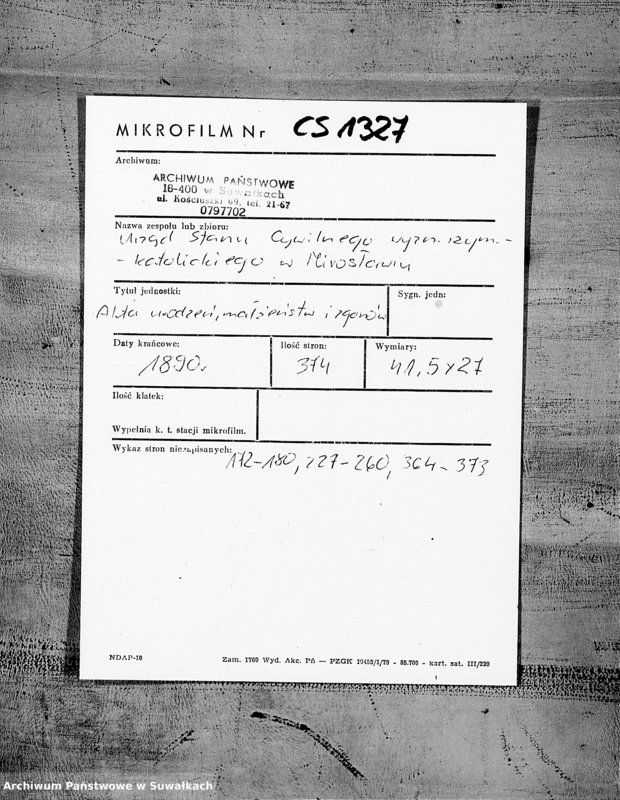 MIKROFILM Nr CS 1327
Archiwum:
ARCHIWUM PAŃSTWOWE
16-400 w Suwałkach
ul. Kościuszki 69, tel. 21-67
0797702
Nazwa zespołu lub zbioru:
Urząd Stanu Cywilnego wyzn. rzym.-
- katolickiego w Mirosławiu
Tytuł jednostki:
Sygn. jedn:
Akta urodzeń, małżeństw i zgonów
Daty krańcowe:
Ilość stron:
Wymiary:
1890r.
374
41,5x27
Ilość klatek:
Wypełnia k. t. stacji mikrofilm.
Wykaz stron niezapisanych:
172-180, 227-260, 364-373
NDAP-10
Zam. 1760 Wyd. Akc. Pń — PZGK 19455/1/79 - 85.700 - kart. sat. III/220
Archiwum Państwowe w Suwałkach